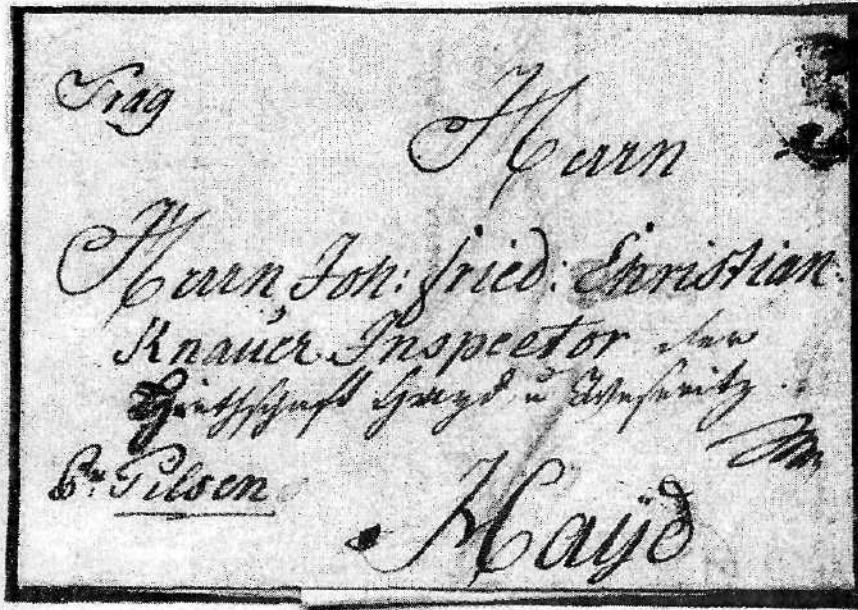 Prag
Herrn
Herrn, Joh: fried: Christian
Knauer Inspector der
Herschafft Hayd u Weseritz
Pr Pilsen
Haÿd